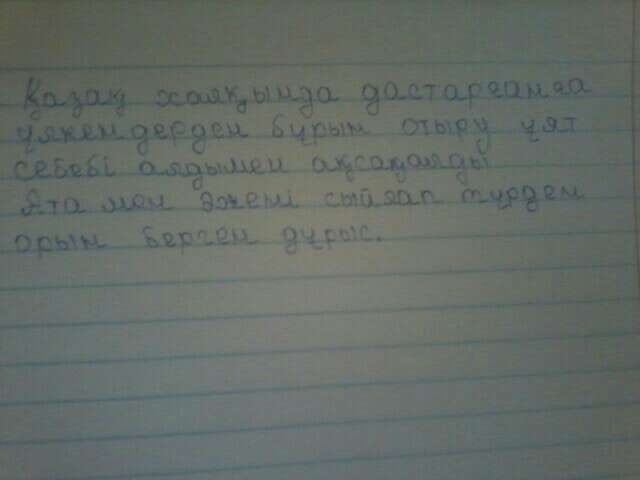 Қазақ халқында дастарғанға
үлкендерден бұрын отыру ұят
себебі алдымен ақсақалды
Ята мен әжені сыйлап түрден
орын берген дұрыс.